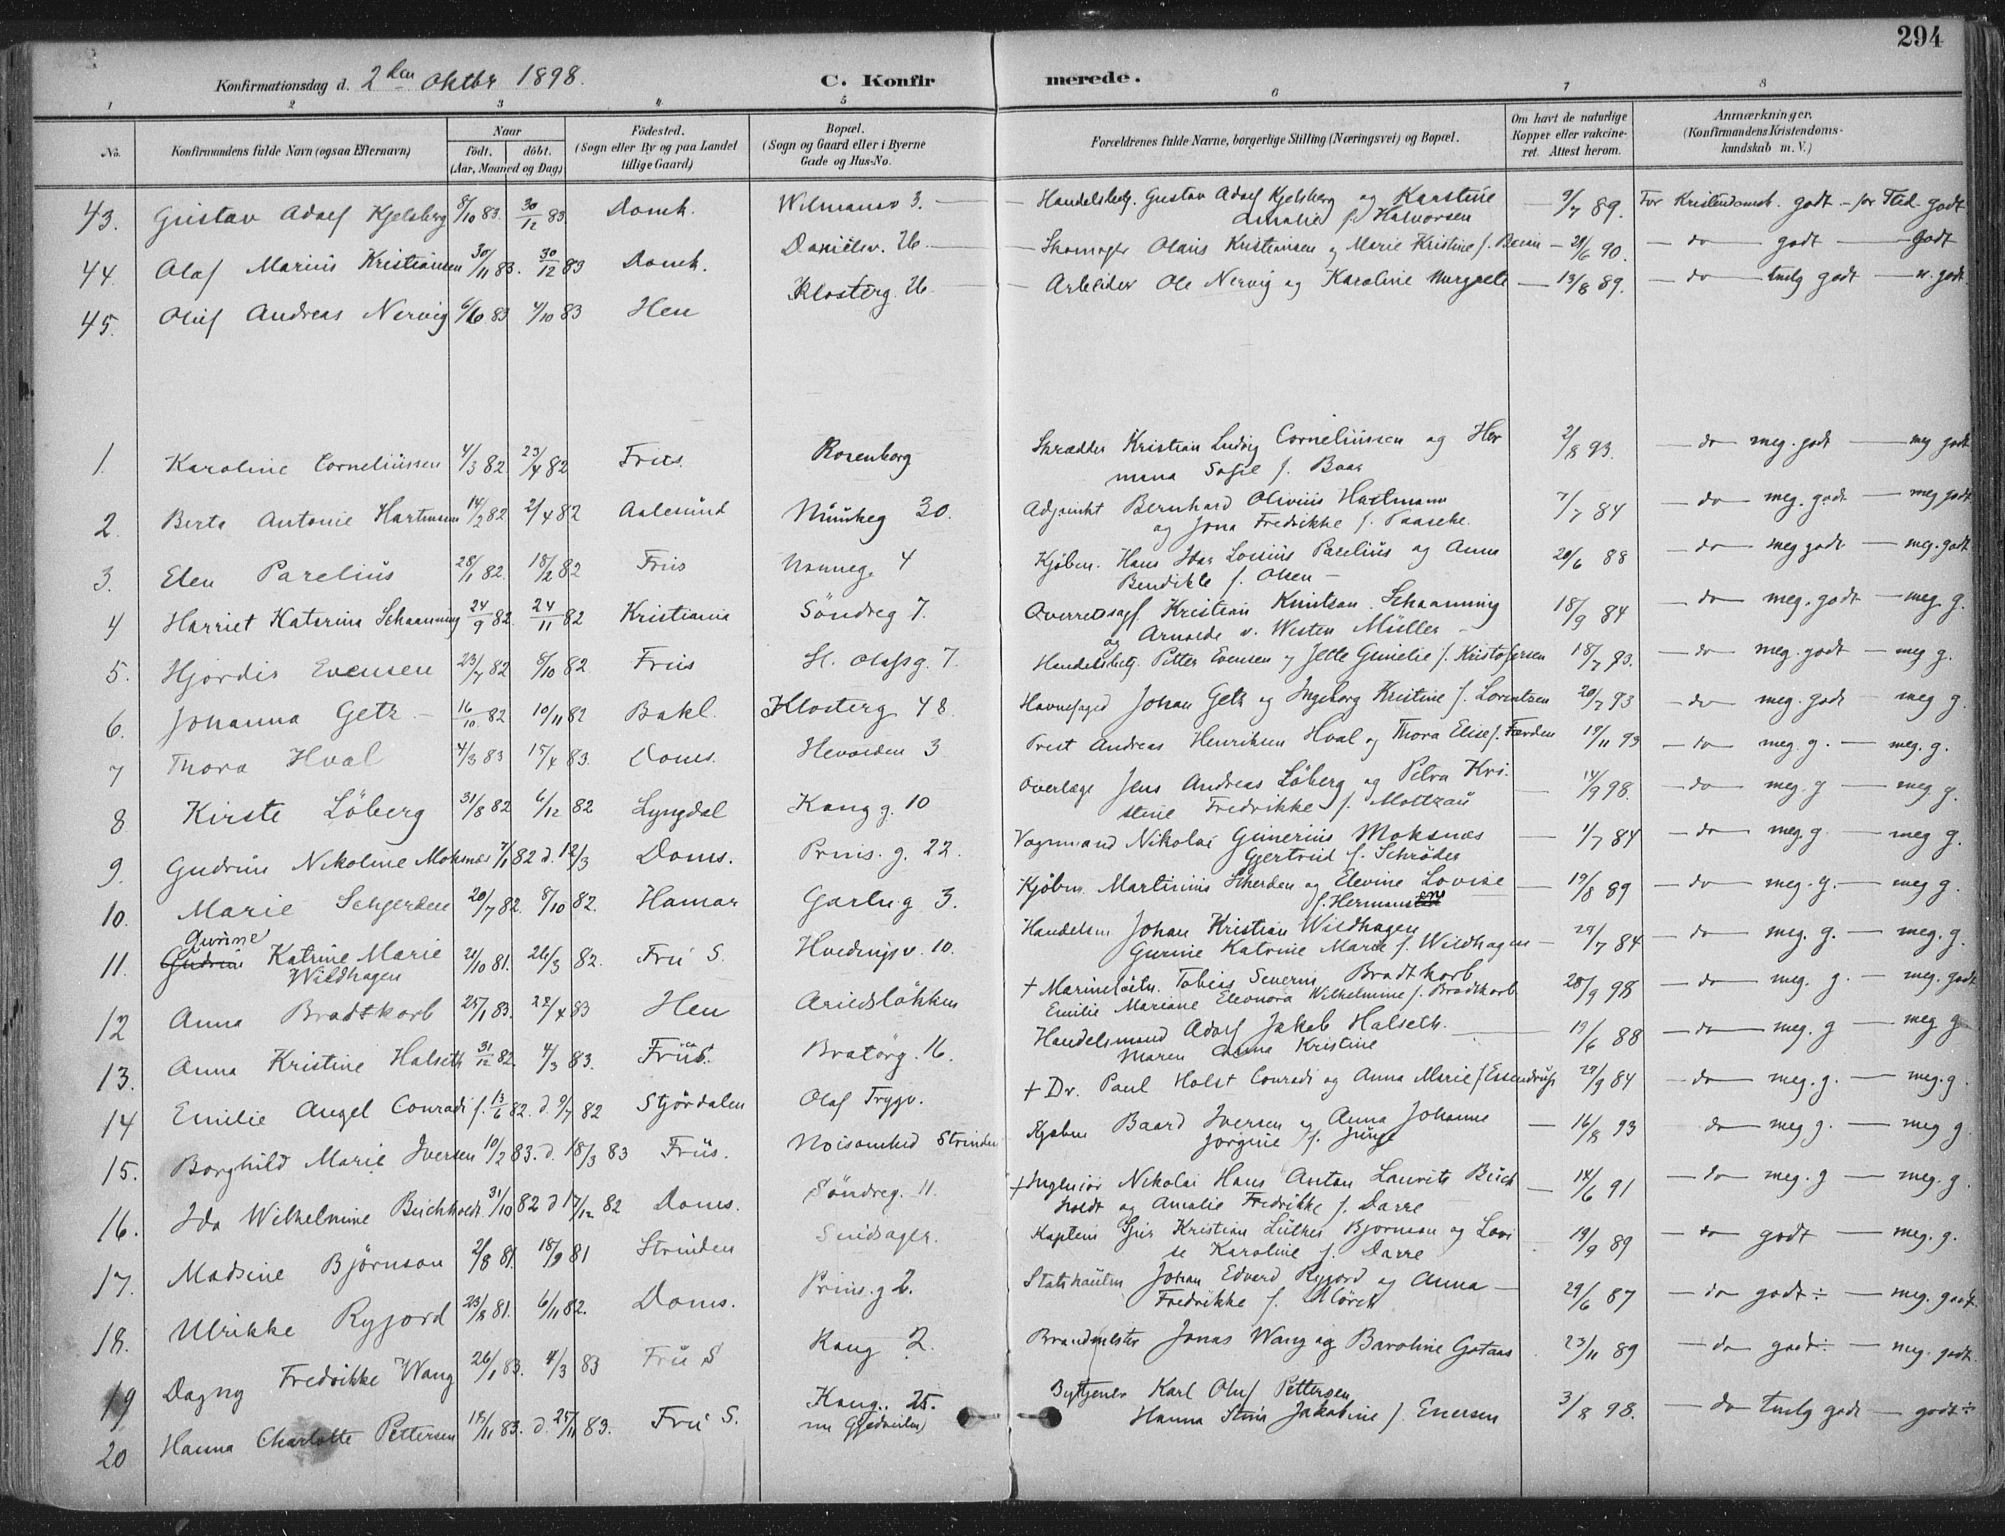 294
Konfirmationsdag d. 2den Oktbr 1898. C. Konfirmerede.
1 2 3 4 5 6 7 8
No. Konfirmandens fulde Navn (ogsaa Efternavn) Naar födt. döbt. (Aar, Maaned og Dag) Födested. (Sogn eller By og paa Landet tillige Gaard) Bopæl. (Sogn og Gaard eller i Byerne Gade og Hus-No. Forældrenes fulde Navne, borgerlige Stilling (Næringsvei) og Bopæl. Om havt de naturlige Kopper eller vaccineret. Attest herom. Anmærkninger. (Konfirmandens Kristendomskundskab m. V.)
43. Gustav Adolf Kjelsberg 8/10 83 30/12 83 Domk. Wilmansv 3. — Handelsbetj. Gustav Adolf Kjelsberg og Karstine Amalie f. Halvorsen — 9/7 89. For Kristendomsk. godt — for Flid godt
44. Olaf Marius Kristiansen 30/11 83. 30/12 83 Domk. Danielsv. 26 — Skomager Olaus Kristiansen og Marie Kristine f. — 21/6 90. — do — godt — godt
45. Oluf Andreas Nervig 6/6 83 4/10 83 Hen Klosterg. 26 — Arbeider Ole Nervig og Karoline Margrete — 13/8 89. — do — tmlg godt — n. godt
1. Karoline Corneliussen 4/3 82 23/4 82 Frus. Rosenborg Skrædder Kristian Ludvig Corneliussen og Hermana Sofie f. Baar 2/8 93. — do — meg. godt — meg godt
2. Berta Antonie Hartmann 14/2 82 2/4 82 Aalesund Munkeg 30. Adjunkt Bernhard Olivius Hartmann og Jona Fredrikke f. Paasche. 7/7 84 — do — meg. godt — meg godt
3. Elen Parelius 28/1 82. 18/2 82 Frus Nonneg. 4 Kjøbm. Hans Idar Lorius Parelius og Anna Bendikte f. Olsen — 20/6 88 — do — meg godt — meg. godt
4 Harriet Katarina Schaanning 24/9 82 24/11 82 Kristiania Söndreg 7. Overretssagf Kristian Schaanning og Arnolde v. Westen Müller — 18/9 84 — do — meg. godt — meg g.
5. Hjördis Evensen 23/7 82 8/10 82 Frus St. Olafsg. 7. Handelsbetj. Petter Evensen og Jette Gurelie f. Kristofersen 18/7 93. — do — meg. godt — meg g.
6. Johanna Getz — 16/10 82 10/11 82 Bakl. Klosterg 48. Havnefoged Johan Getz og Ingeborg Kristine f. Lorentzen 20/7 93 — do — meg. godt — meg g.
7 Thora Hval 4/3 83 15/4 83. Doms. 3 Prest Andreas Henriksen Hval og Thora Elise f. Færden 19/11 93 — do — meg. g. — meg. g.
8. Kirste Löberg 31/8 82 6/12 82 Lyngdal Kongg. 10 Overlæge Jens Andreas Löberg og Petra Kristine Fredrikke f. Moltzau — 14/9 98. — do — meg. g — meg g.
9. Gudrun Nikoline Moksnæs 7/1 82 d. 12/3 Doms. Prins. g. 22. Vognmand Nikolai Gunerius Moksnæs Gjertrud f. Schröder — 1/7 84 — do — meg. g — meg g.
10. Marie Schjerden 20/7 82. 8/10 82. Hamar Garlug 3. Kjøbm. Martinius Scherden og Elevine Lovise f. Hermansen — 19/8 89 — do — meg. g. — meg g.
11. Gudrun Gurine Katrine Marie Wildhagen 21/10 81. 26/3 82. Fru S. Hvedingsv. 10. Handelsm Johan Kristian Wildhagen Gurine Katrine Marie f. Wildhagen — 29/7 84 — do — meg. g. — meg. g.
12 Anna Bradtkorb 25/1 83. 22/4 83 Hen Arildsløkken + Tobias Severin Bradtkorb Emilie Mariane Eleonora Wilhelmine f. Bradtkorb 28/9 98 — do — meg. g. — meg. godt
13. Anna Kristine Halseth 31/12 82. 4/3 83. Frus. Bratörg. 16. Handelsmand Adolf Jakob Halseth. Maren Anna Kristine — 19/6 88 — do — meg. g — meg g
14 Emilie Angel Conradi f. 13/6 82. d. 9/7 82 Stjördalen Olaf Trygv. + Dr. Paul Holst Conradi og Anna Marie f Essendrup 27/9 84 — do — meg. g. — meg. g.
15. Borghild Marie Iversen 10/2 83. d. 18/3 83 Frus. Noisomhed Strinden Kjøbm Baard Iversen og Anna Johanne Jorgine f. Junge — 16/8 93 do — meg g. — meg g.
16. Ida Wilhelmine Buchholdt 31/10 82 d 17/12 82 Doms. Söndreg. 11. + Ingeniør Nikolai Hans Anton Laurits Buchholdt og Amalie Fredrikke f. Darre — 14/6 91 — do — meg. g — meg. g.
17. Madsine Björnson 2/8 81. 18/9 81 Strinden Kaptein Kristian Luther Bjørnson og Lovise Karoline f. Darre 19/9 89 — do godt — meg. g.
18. Ulrikke Ryjord 23/8 81. 6/11 82. Doms. Prins. g 2. Johan Edvard Ryjord og Anna — Fredrikke f. Mörch 29/6 87 — do godt ÷ — meg. godt.
19 Dagny Fredrikke Wang 26/1 83. 4/3 83 Fru S Kong 2. Brandmester Jonas Wang og Baroline Gotaas 23/11 89 — do godt ÷ — meg. godt.
20 Hanna Charlotte Pettersen 19/11 83. d. 25/11 83. Fru S. Kong. 25. nu Bytjener Karl Oluf Pettersen Hanna Stina Jakobine f. Enersen 3/8 98. — do tmlg godt — godt ÷